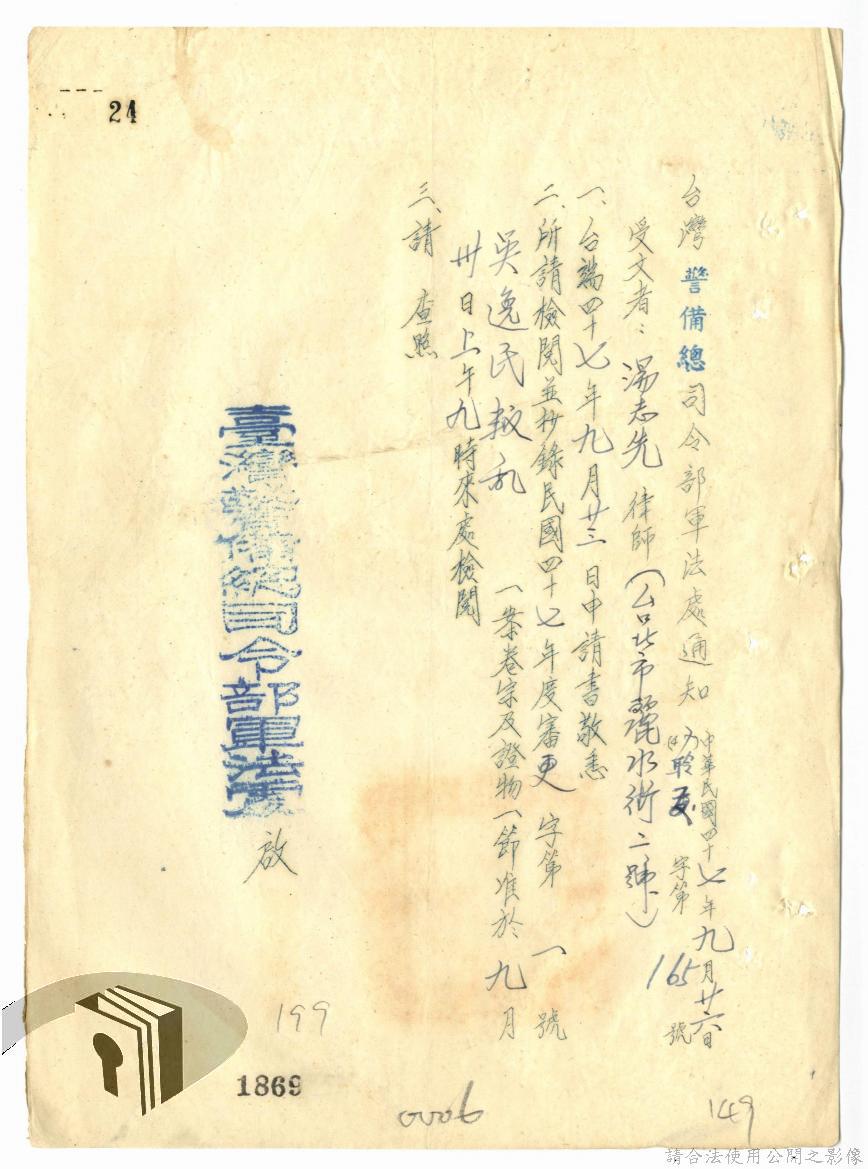 24
台灣警備總司令部軍法處通知
中華民國四十七年九月廿六日
聆 字第 165 號
受文者：湯志先 律師（台北市麗水街二號）
一、台端四十七年九月廿三日申請書敬悉
二、所請檢閱並抄錄民國四十七年度審更 字第 一 號
吳逸民叛乱 一案卷宗及證物一節准於九月
卅日上午九時來處檢閱
三、請 查照
臺灣警備總司令部軍法處 啟
199
1869
0006
149
請合法使用公開之影像